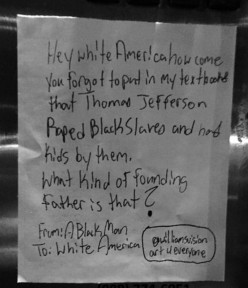 Hey white America how come
You forgot to put in my textbooks
that Thomas Jefferson
Raped Black Slaves and had
kids by them.
What kind of founding
father is that?
From: A Black Man
To: White America
art 4 everyone